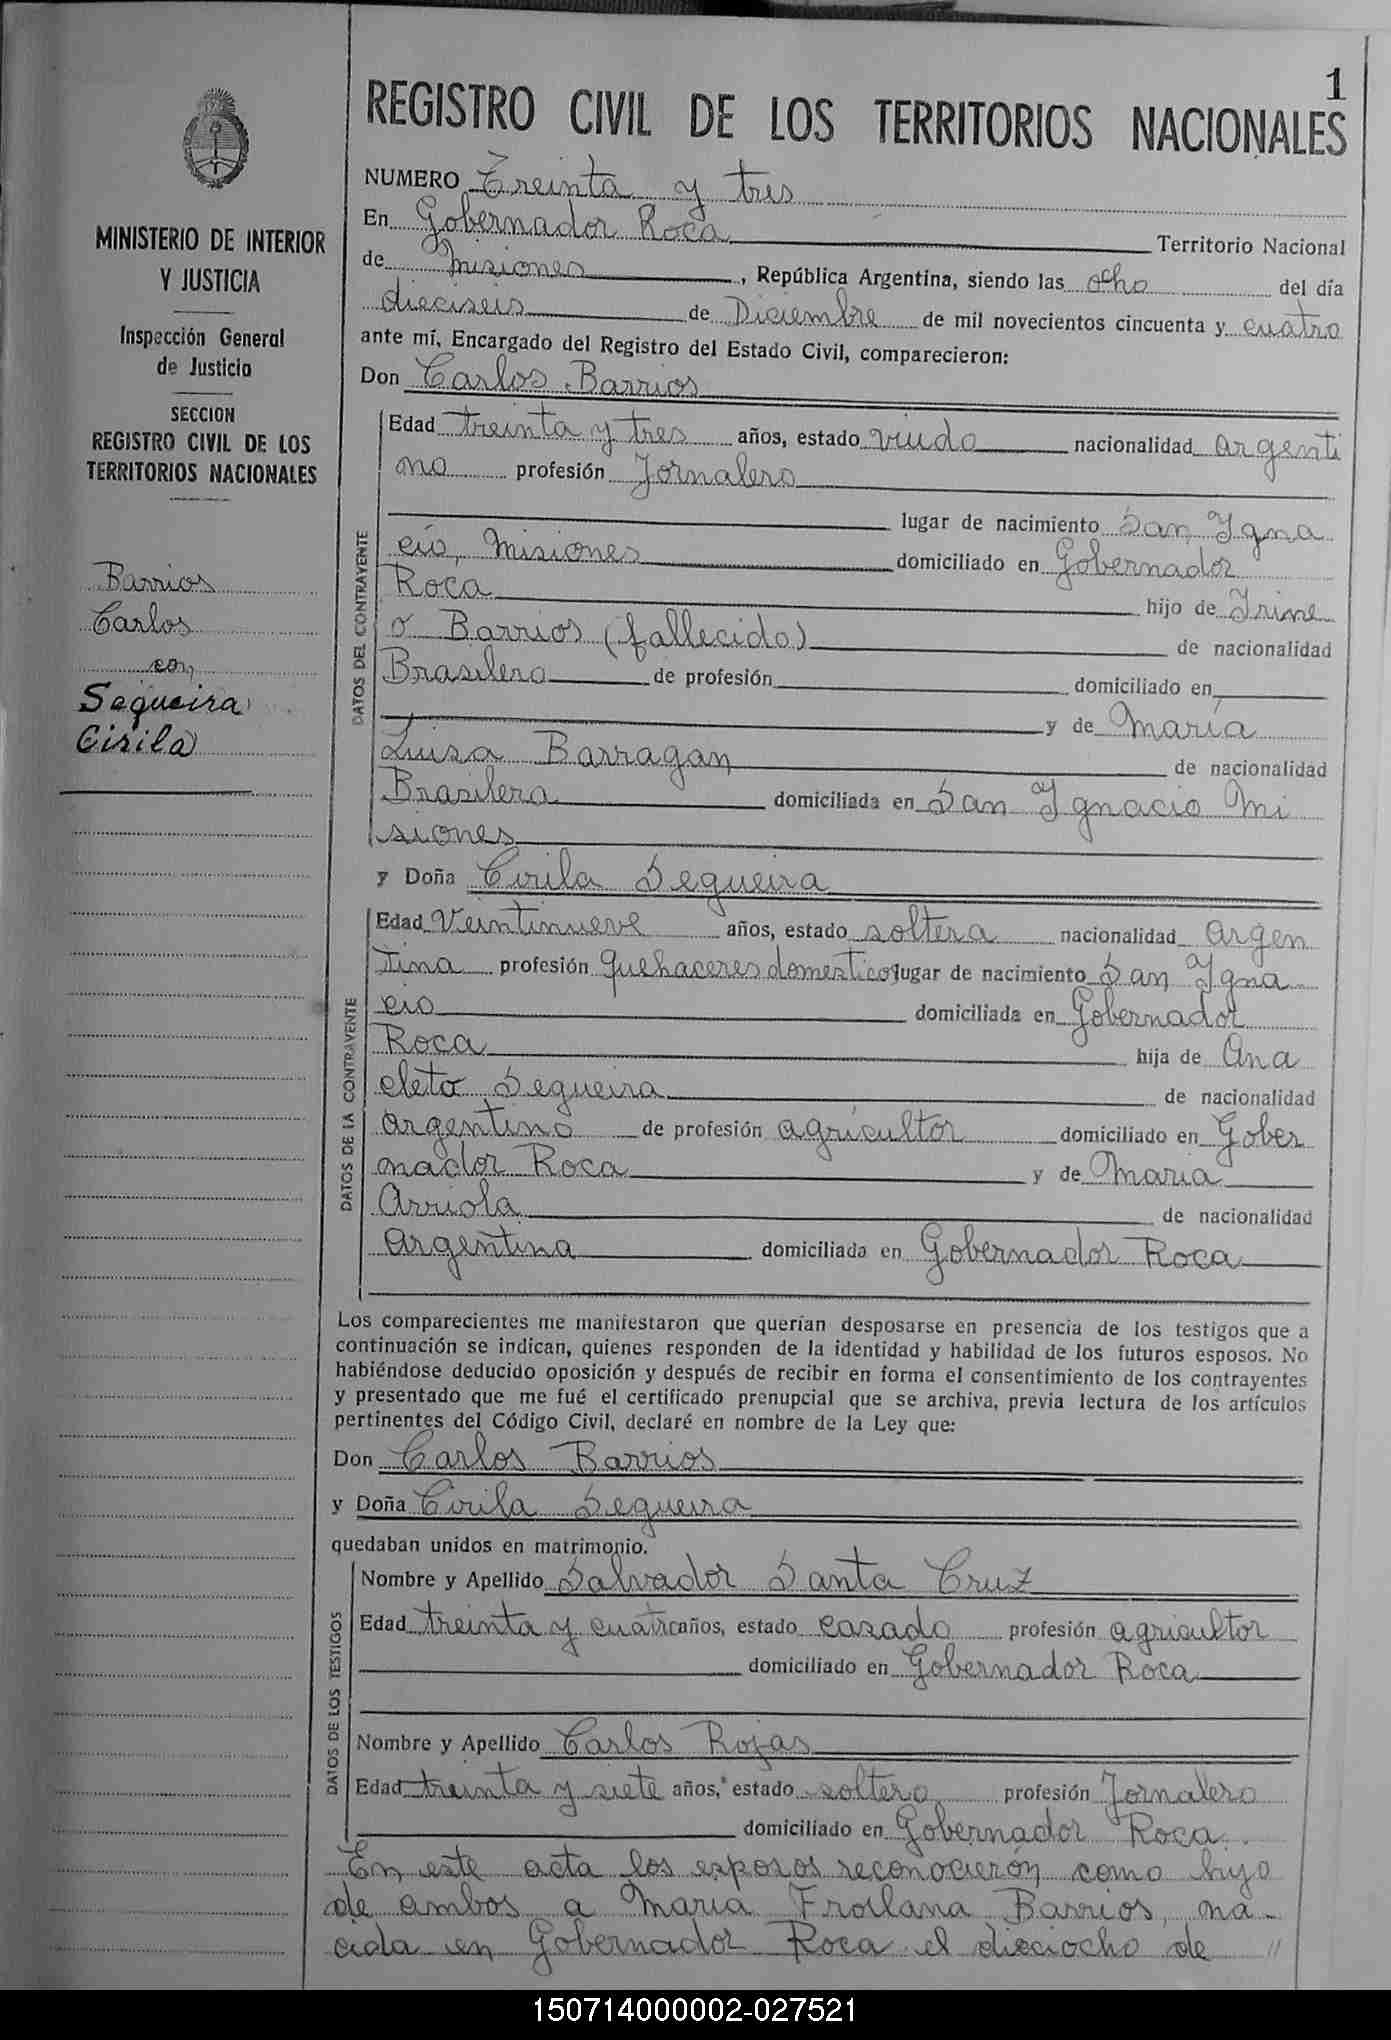 1
REGISTRO CIVIL DE LOS TERRITORIOS NACIONALES
MINISTERIO DE INTERIOR
Y JUSTICIA
Inspección General
de Justicia
SECCION
REGISTRO CIVIL DE LOS
TERRITORIOS NACIONALES
Barrios
Carlos
con
Sequeira
Cirila
NUMERO Treinta y tres
En Gobernador Roca Territorio Nacional
de Misiones, República Argentina, siendo las ocho del día
dieciseis de Diciembre de mil novecientos cincuenta y cuatro
ante mí, Encargado del Registro del Estado Civil, comparecieron:
Don Carlos Barrios
DATOS DEL CONTRAYENTE
Edad treinta y tres años, estado viudo nacionalidad argenti
no profesión Jornalero
lugar de nacimiento San Igna
cio, Misiones domiciliado en Gobernador
Roca hijo de Irine
o Barrios (fallecido) de nacionalidad
Brasilero de profesión domiciliado en
y de María
Luisa Barragan de nacionalidad
Brasilera domiciliada en San Ignacio Mi
siones
y Doña Cirila Sequeira
DATOS DE LA CONTRAYENTE
Edad Veintinueve años, estado soltera nacionalidad argen
tina profesión quehaceres domesticos lugar de nacimiento San Igna
cio domiciliada en Gobernador
Roca hija de Ana
cleto Sequeira de nacionalidad
argentino de profesión agricultor domiciliado en Gober
nador Roca y de Maria
Arriola de nacionalidad
argentina domiciliada en Gobernador Roca
Los comparecientes me manifestaron que querían desposarse en presencia de los testigos que a
continuación se indican, quienes responden de la identidad y habilidad de los futuros esposos. No
habiéndose deducido oposición y después de recibir en forma el consentimiento de los contrayentes
y presentado que me fué el certificado prenupcial que se archiva, previa lectura de los artículos
pertinentes del Código Civil, declaré en nombre de la Ley que:
Don Carlos Barrios
y Doña Cirila Sequeira
quedaban unidos en matrimonio.
DATOS DE LOS TESTIGOS
Nombre y Apellido Salvador Santa Cruz
Edad treinta y cuatro años, estado casado profesión agricultor
domiciliado en Gobernador Roca
Nombre y Apellido Carlos Rojas
Edad treinta y siete años, estado soltero profesión Jornalero
domiciliado en Gobernador Roca.
En este acta los esposos reconocierón como hijo
de ambos a Maria Froilana Barrios, na-
cida en Gobernador Roca el dieciocho de //
150714000002-027521